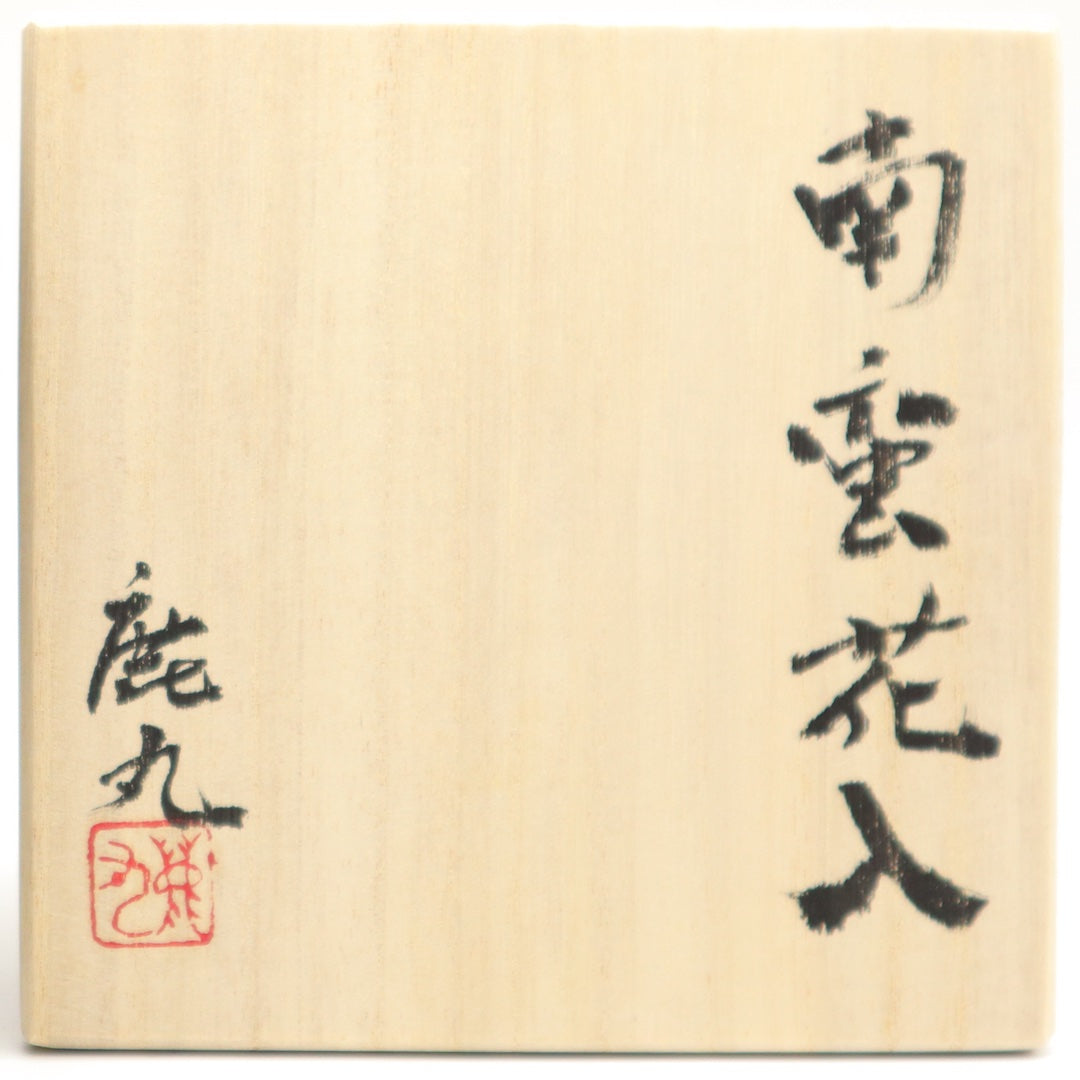 南蛮花入
鹿丸